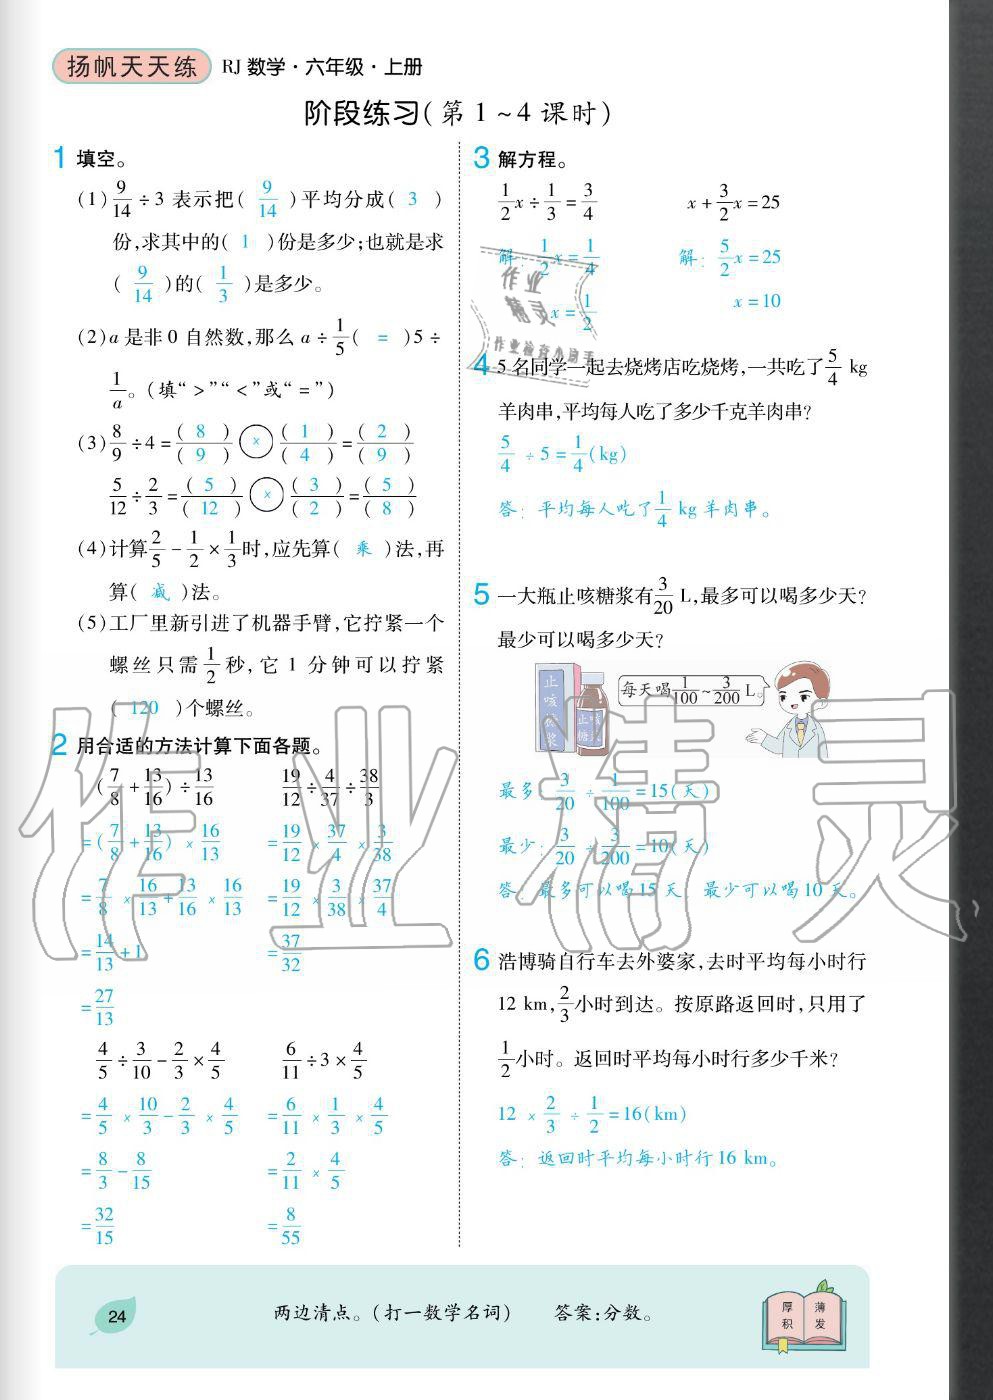 扬帆天天练 RJ 数学·六年级·上册
阶段练习(第1~4课时)
1 填空。
(1) 9/14 ÷ 3 表示把( 9/14 )平均分成( 3 )
份,求其中的( 1 )份是多少;也就是求
( 9/14 )的( 1/3 )是多少。
(2) a 是非0自然数,那么 a ÷ 1/5 ( = ) 5 ÷
1/a。(填“>”“<”或“=”)
(3) 8/9 ÷ 4 = (8)/(9) × (1)/(4) = (2)/(9)
5/12 ÷ 2/3 = (5)/(12) × (3)/(2) = (5)/(8)
(4) 计算 2/5 - 1/2 × 1/3 时,应先算( 乘 )法,再
算( 减 )法。
(5) 工厂里新引进了机器手臂,它拧紧一个
螺丝只需 1/2 秒,它1分钟可以拧紧
( 120 )个螺丝。
2 用合适的方法计算下面各题。
(7/8 + 13/16) ÷ 13/16
=(7/8 + 13/16) × 16/13
= 7/8 × 16/13 + 13/16 × 16/13
= 14/13 + 1
= 27/13
19/12 ÷ 4/37 ÷ 38/3
= 19/12 × 37/4 × 3/38
= 19/12 × 3/38 × 37/4
= 37/32
4/5 ÷ 3/10 - 2/3 × 4/5
= 4/5 × 10/3 - 2/3 × 4/5
= 8/3 - 8/15
= 32/15
6/11 ÷ 3 × 4/5
= 6/11 × 1/3 × 4/5
= 2/11 × 4/5
= 8/55
3 解方程。
1/2 x ÷ 1/3 = 3/4
解: 1/2 x = 1/4
x = 1/2
x + 3/2 x = 25
解: 5/2 x = 25
x = 10
作业
精灵
作业检查小助手
4 5名同学一起去烧烤店吃烧烤,一共吃了 5/4 kg
羊肉串,平均每人吃了多少千克羊肉串?
5/4 ÷ 5 = 1/4 (kg)
答: 平均每人吃了 1/4 kg 羊肉串。
5 一大瓶止咳糖浆有 3/20 L,最多可以喝多少天?
最少可以喝多少天?
止咳糖浆
止咳糖浆
每天喝 1/100 ~ 3/200 L。
最多: 3/20 ÷ 1/100 = 15(天)
最少: 3/20 ÷ 3/200 = 10(天)
答: 最多可以喝15天, 最少可以喝10天。
6 浩博骑自行车去外婆家,去时平均每小时行
12 km, 2/3 小时到达。按原路返回时,只用了
1/2 小时。返回时平均每小时行多少千米?
12 × 2/3 ÷ 1/2 = 16(km)
答: 返回时平均每小时行16 km。
作业精灵
24 两边清点。(打一数学名词) 答案:分数。
厚积薄发